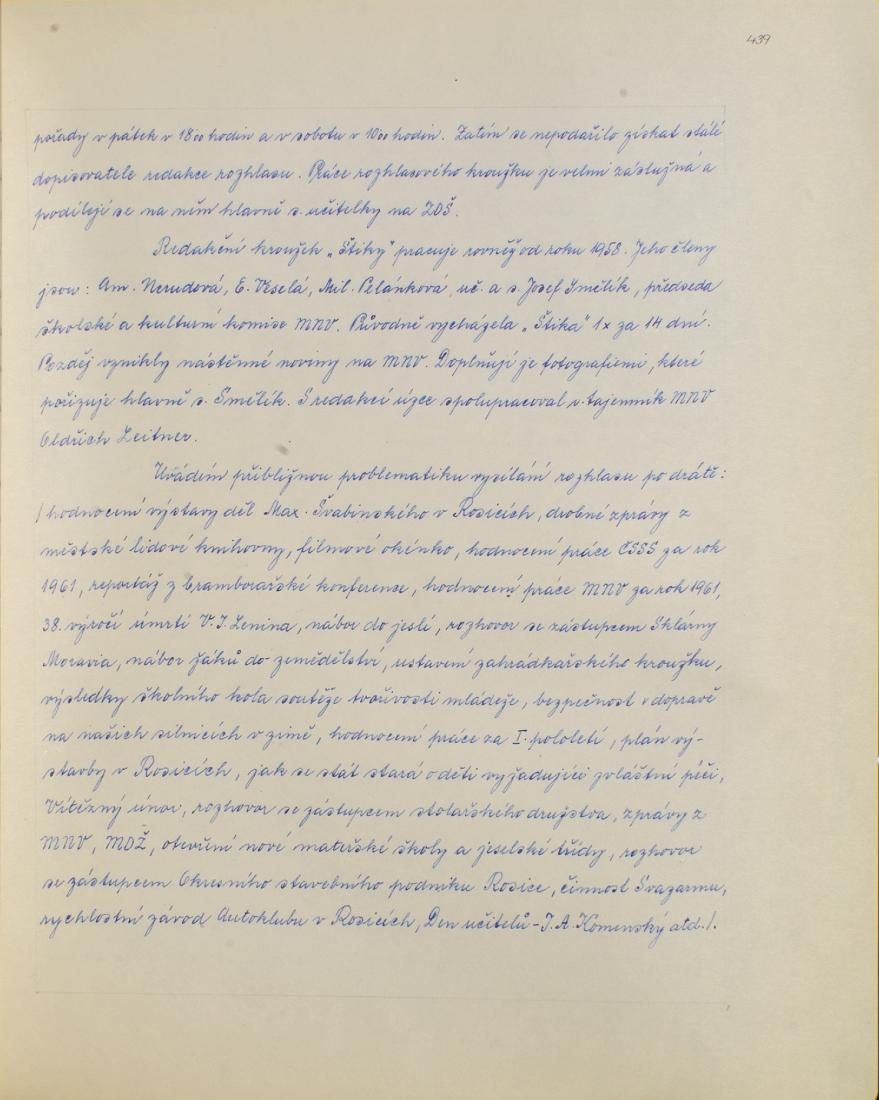 439
pořady v pátek v 18oo hodin a v sobotu v 10oo hodin. Zatím se nepodařilo získat stálé
dopisovatele redakce rozhlasu. Práce rozhlasového kroužku je velmi záslužná a
podílejí se na něm hlavně s. učitelky na ZDŠ.
Redakční kroužek „Štiky" pracuje rovněž od roku 1958. Jeho členy
jsou: Am. Nerudová, E. Veselá, Mil. Pelánková, uč. a s. Josef Smělík, předseda
školské a kulturní komise MNV. Původně vycházela „Štika" 1x za 14 dní.
Později vznikly nástěnné noviny na MNV. Doplňují je fotografiemi, které
pořizuje hlavně s. Smělík. S redakcí úzce spolupracoval s. tajemník MNV
Oldřich Leitner.
Uvádím přibližnou problematiku vysílání rozhlasu po drátě:
/ hodnocení výstavy děl Max. Švabinského v Rosicích, drobné zprávy z
městské lidové knihovny, filmové okénko, hodnocení práce ČSSS za rok
1961, reportáž z bramborařské konference, hodnocení práce MNV za rok 1961,
38. výročí úmrtí V. I. Lenina, nábor do jeslí, rozhovor se zástupcem Sklárny
Moravia, nábor žáků do zemědělství, ustavení zahrádkářského kroužku,
výsledky školního kola soutěže tvořivosti mládeže, bezpečnost v dopravě
na našich silnicích v zimě, hodnocení práce za I. pololetí, plán vý-
stavby v Rosicích, jak se stát stará o děti vyžadující zvláštní péči,
Vítězný únor, rozhovor se zástupcem stolařského družstva, zprávy z
MNV, MDŽ, otevření nové mateřské školy a jeselské třídy, rozhovor
se zástupcem Okresního stavebního podniku Rosice, činnost Svazarmu,
rychlostní závod Autoklubu v Rosicích, Den učitelů - J. A. Komenský atd. /.